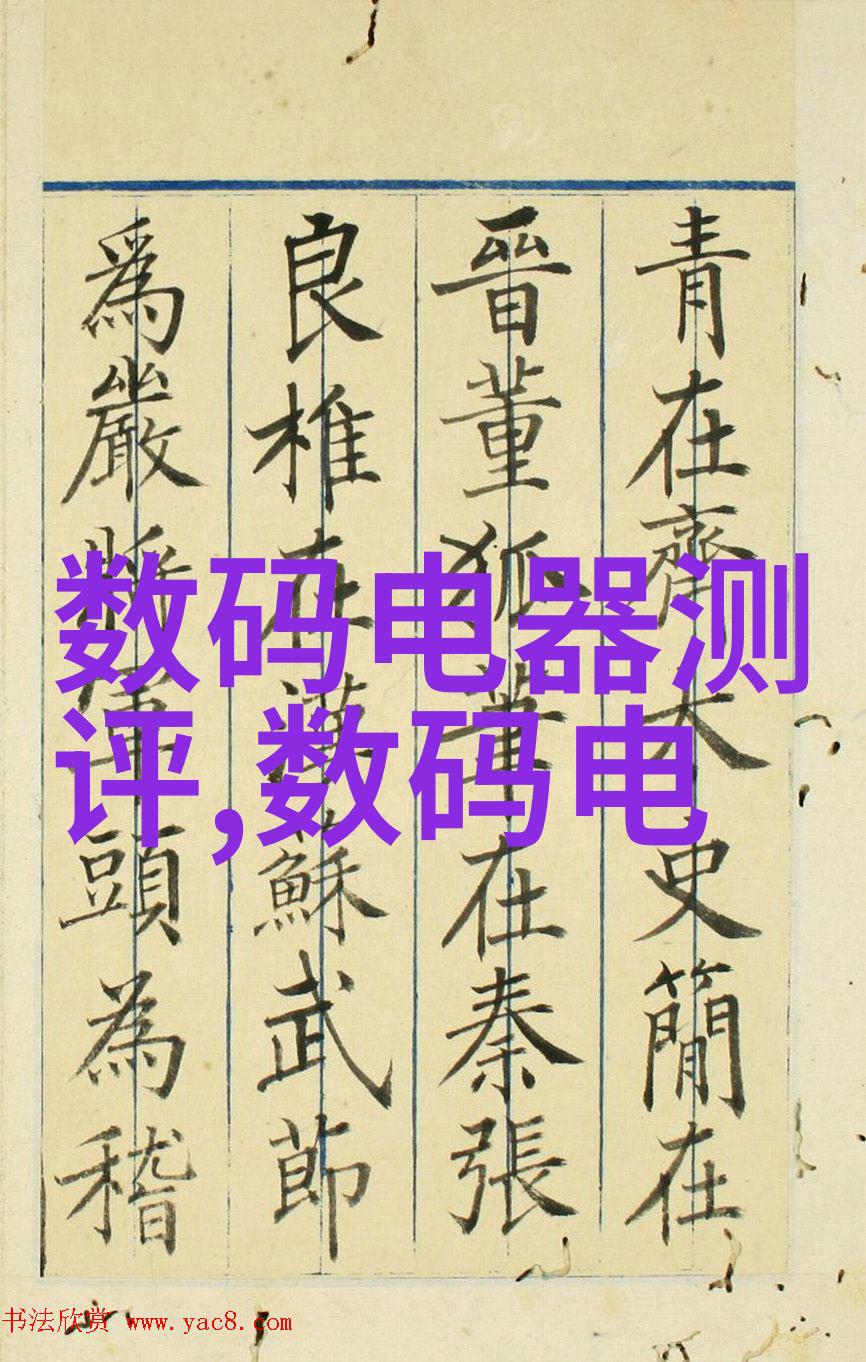 青在齊太史簡在
晉董狐筆在秦張
良椎在漢蘇武節
爲嚴將軍頭為稽
数码电器测
评,数码电
书法欣赏 www.yac8.com